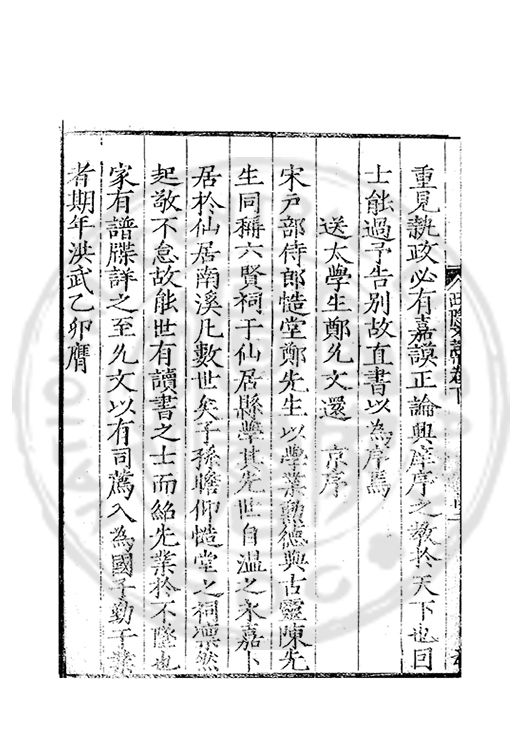 重見執政必有嘉謨正論興庠序之敎於天下也回
士能過予告别故直書以為序焉
送太學生鄭允文還 京序
宋戸部侍郎慥堂鄭先生以學業勲德與古靈陳先
生同稱六賢祠于仙居縣學其先世自温之永嘉卜
居於仙居南溪凡數世矣子孫瞻仰慥堂之祠凛然
起敬不怠故能世有讀書之士而紹先業於不墜也
家有譜牒詳之至允文以有司薦入為國子勤于業
者期年洪武乙卯膺